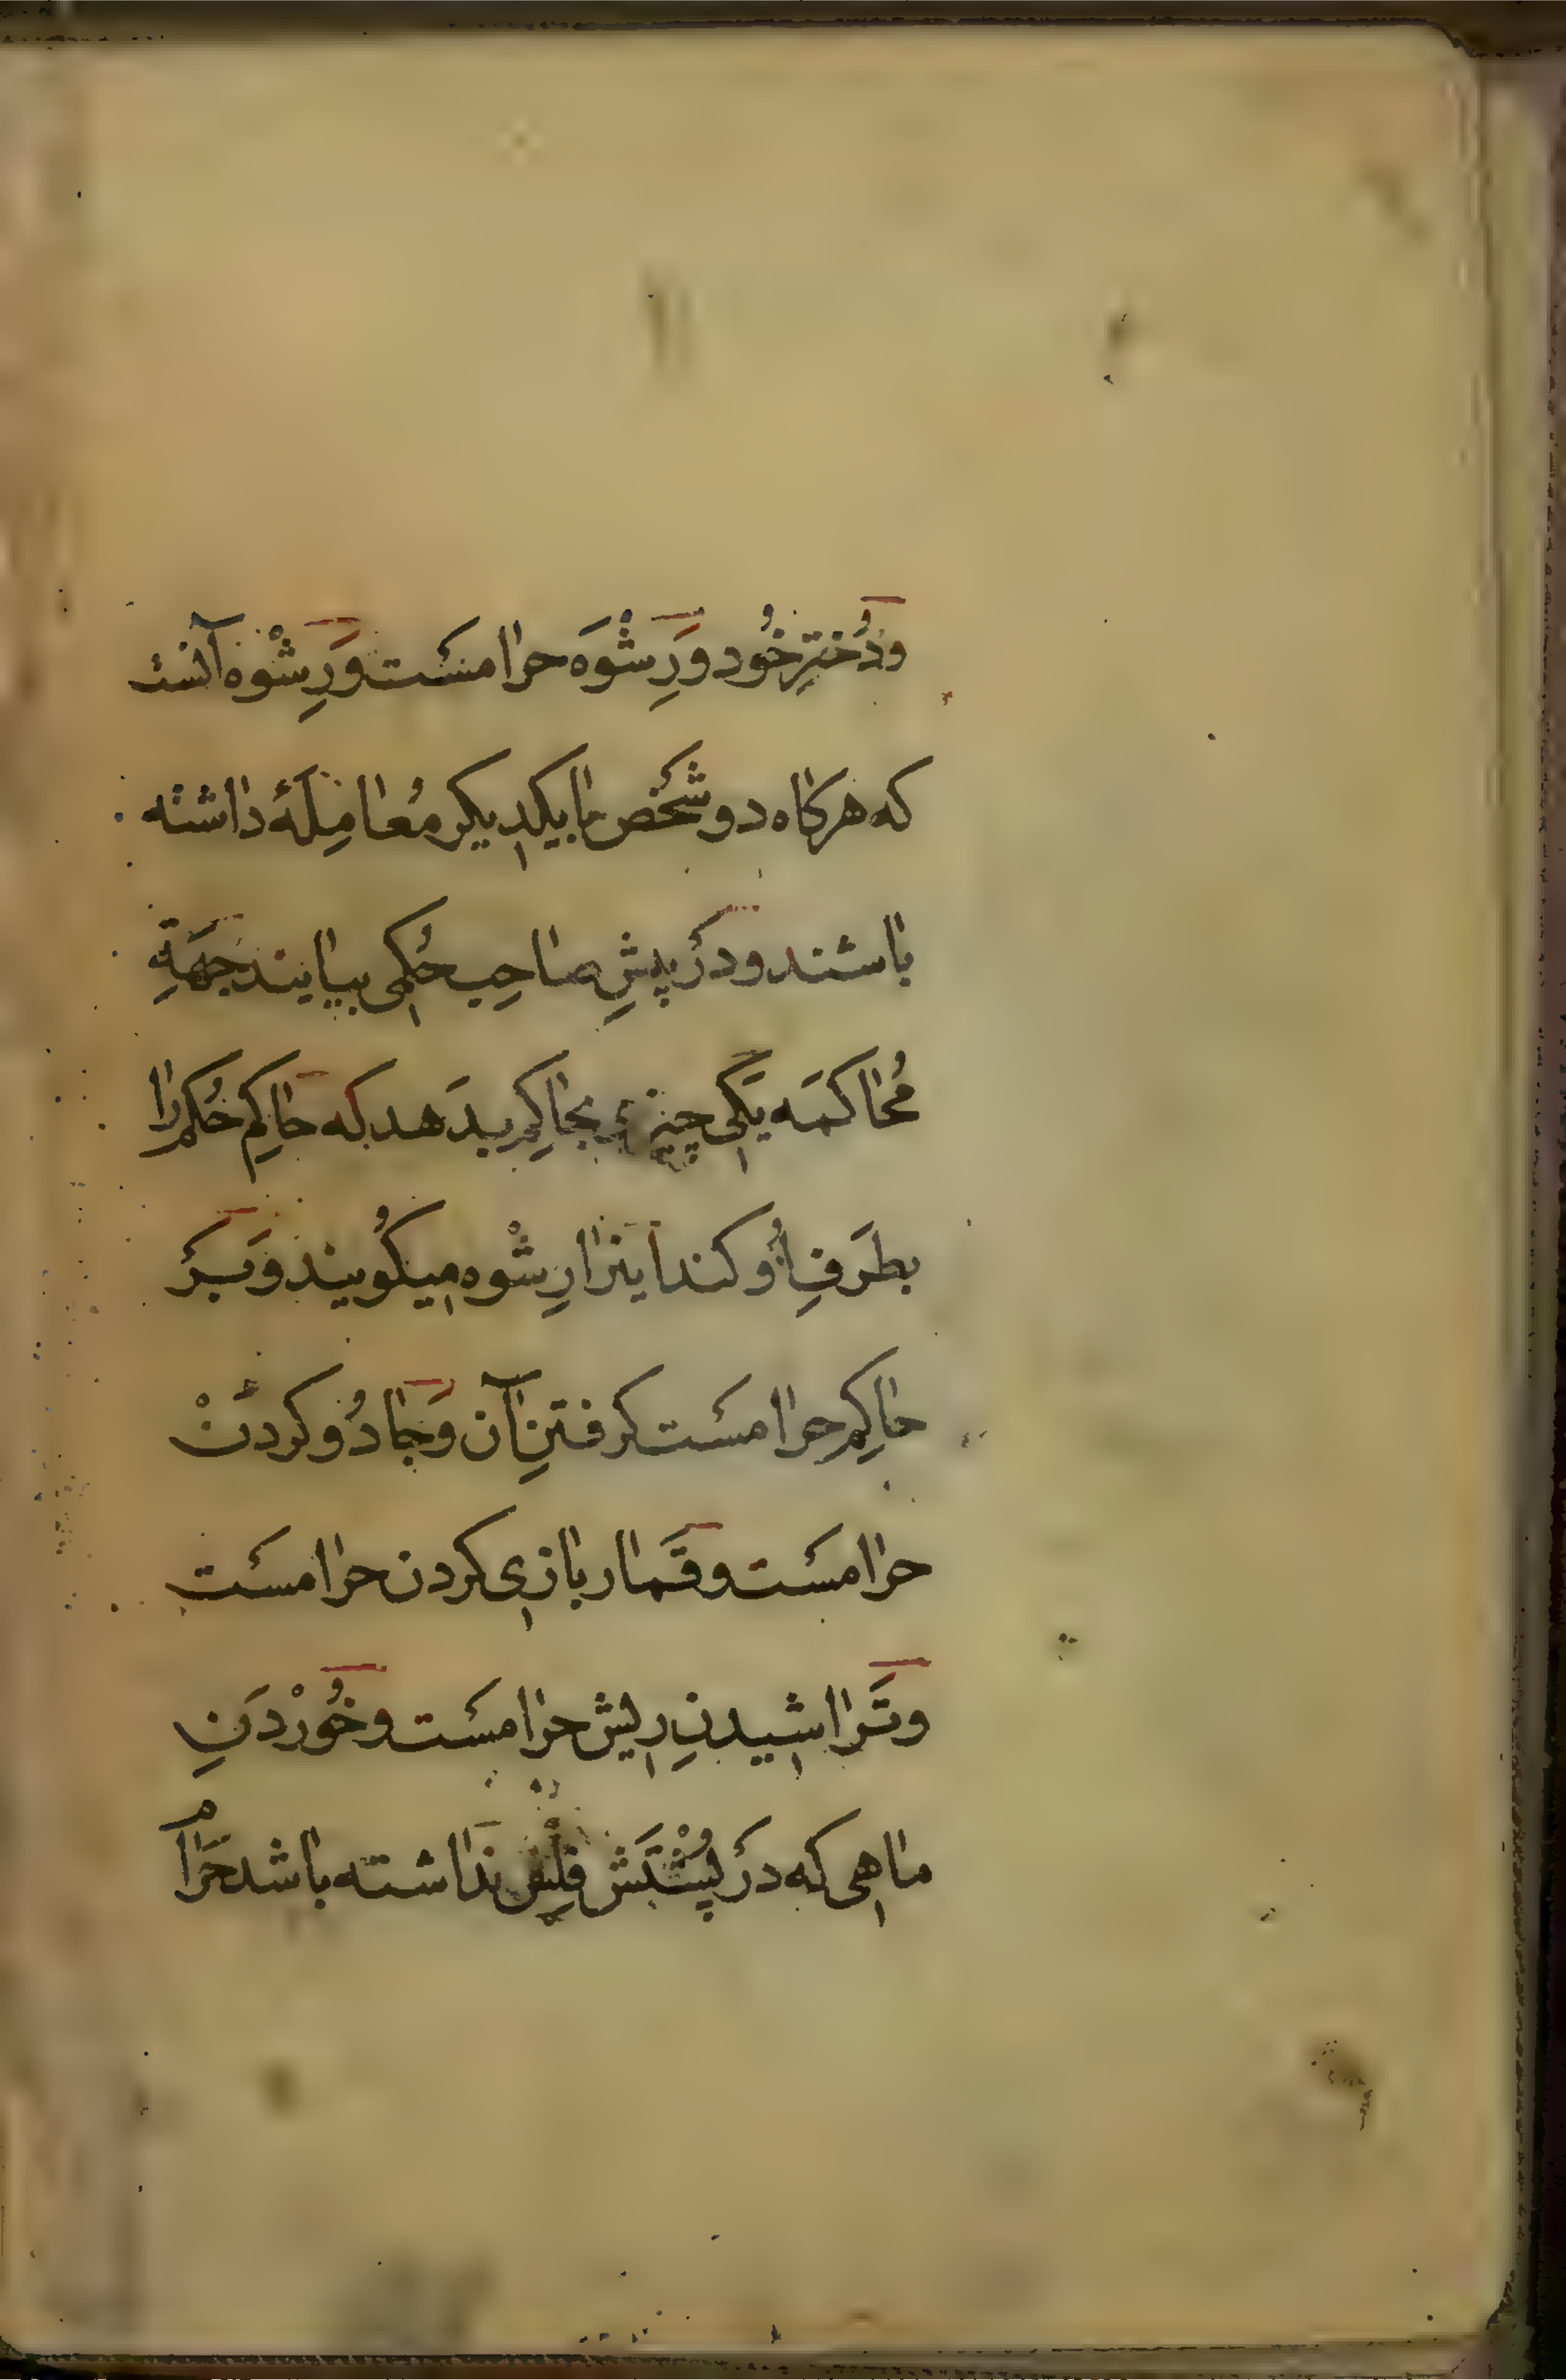 ودُخترِ خُود وَرِشْوَه حرامسَت وَرِشْوه آنست
که هرکاه دو شَخص با یکدیکر مُعامِلَهٔ داشته
باشند و درَ پیشِ صاحِب حُکمی بیایند جِهَةِ
مُحاکمَه یَکی چیزی بحاکِم بدَهد که حاکِم حُکم را
بطَرَفِ اُو کند اینرا رِشْوه میکُویند وَبَرَ
حاکِم حرامسَت کرفتنِ آن وَجادُو کردَنْ
حرامسَت وقَمار بازی کردن حرامسَت
وتَراشیدنِ ریش حرامسَت وخُورْدَنِ
ماهی که درَ پُشْتَش فِلِسْ نَداشته باشد حَرام